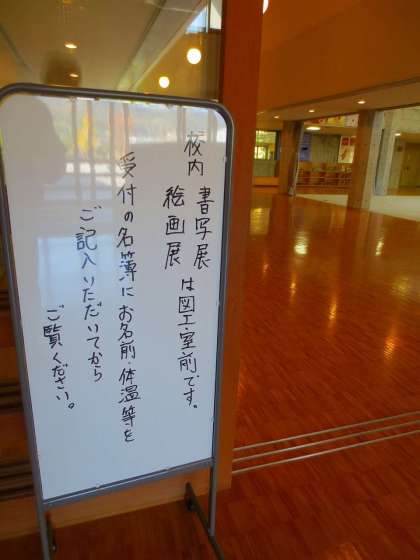 校内 書写展 絵画展 は図工室前です。
受付の名簿にお名前・体温等を
ご記入いただいてから
ご覧ください。